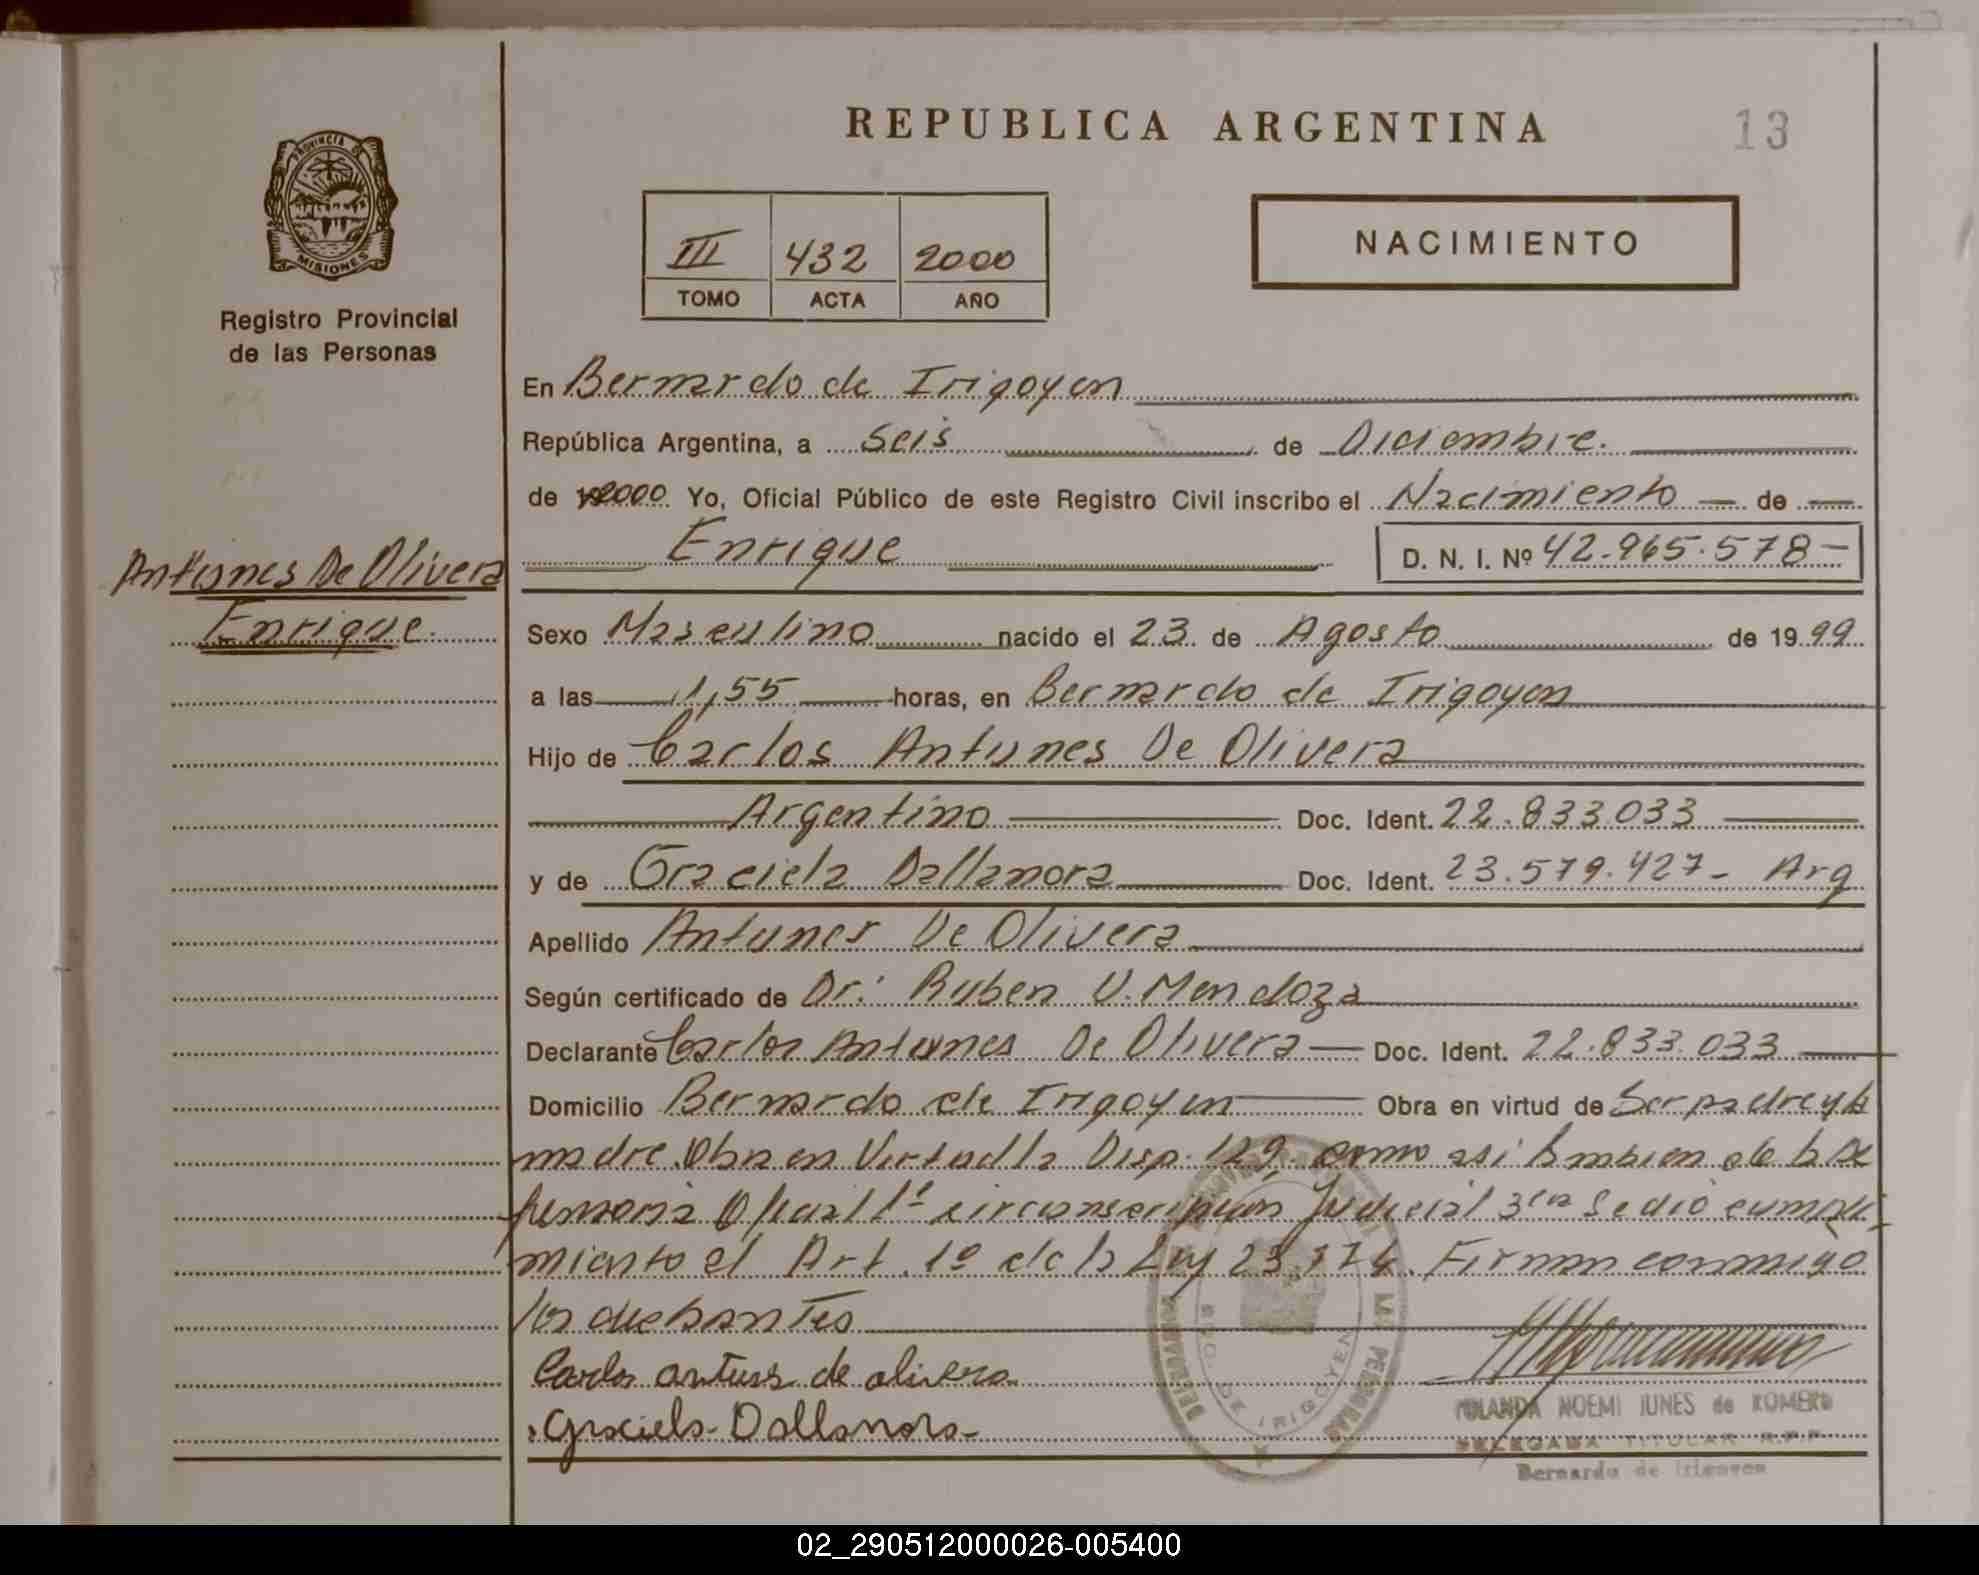 REPUBLICA ARGENTINA
13
PROVINCIA DE
MISIONES
Registro Provincial
de las Personas
III 432 2000
TOMO ACTA AÑO
NACIMIENTO
En Bernardo de Irigoyen
República Argentina, a Seis de Diciembre.
de 2000 Yo, Oficial Público de este Registro Civil inscribo el Nacimiento de
Enrique D. N. I. Nº 42.965.578
Antunes De Olivera
Enrique.
Sexo Masculino nacido el 23 de Agosto de 1999
a las 1,55 horas, en Bernardo de Irigoyen
Hijo de Carlos Antunes De Olivera
Argentino Doc. Ident. 22.833.033
y de Graciela Dallanora Doc. Ident. 23.579.427- Arg
Apellido Antunes De Olivera
Según certificado de Dr. Ruben V. Mendoza
Declarante Carlos Antunes De Olivera Doc. Ident. 22.833.033
Domicilio Bernardo de Irigoyen Obra en virtud de Ser padre y la
madre. Obra en Virtud la Disp. 129. como asi tambien de la De
fensoria Oficial 1ª circunscripcion Judicial 3era Se dió cumpli
miento el Art. 1º de la Ley 23.776. Firman conmigo
los declarantes
Carlos antunes de olivera
Graciela Dallanora
BDO. DE IRIGOYEN
YOLANDA NOEMI JUNES de ROMERO
DELEGADA TITULAR R.P.P.
Bernardo de Irigoyen
02_290512000026-005400